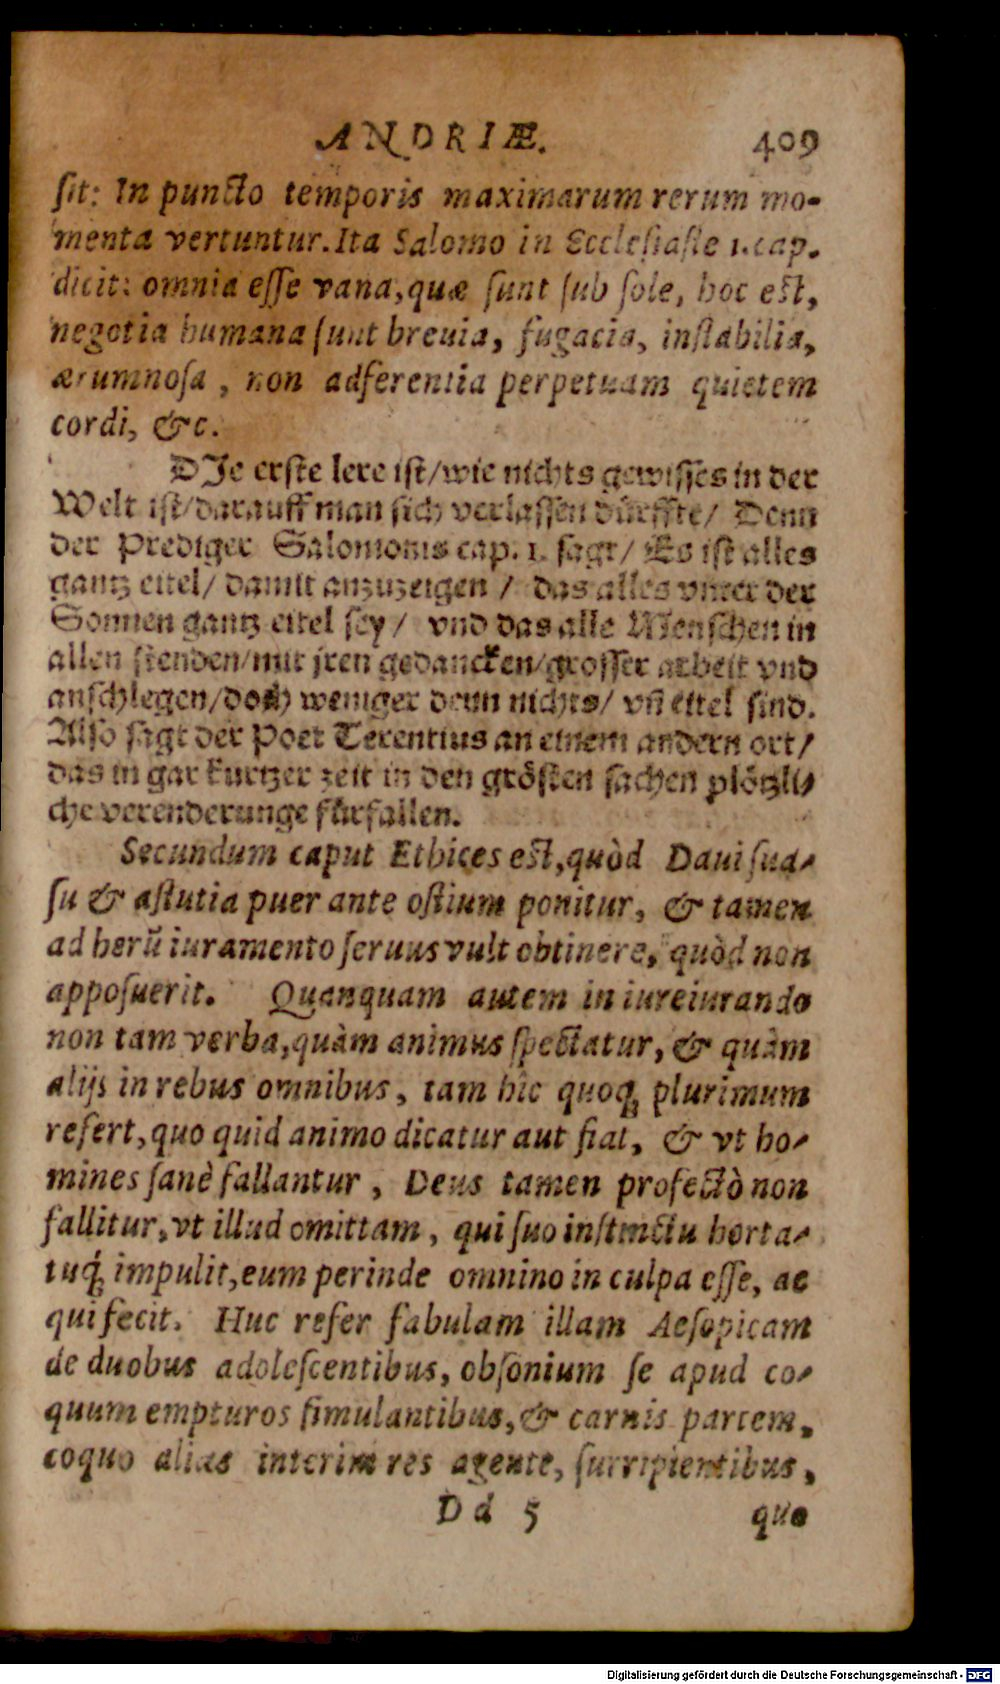 ANDRIÆ. 409
ſit: In puncto temporis maximarum rerum mo-
menta vertuntur. Ita Salomo in Eccleſiaſte 1. cap.
dicit: omnia eſſe vana, quæ ſunt ſub ſole, hoc eſt,
negotia humana ſunt breuia, fugacia, inſtabilia,
ærumnoſa, non adferentia perpetuam quietem
cordi, &c.
DJe erſte lere iſt/wie nichts gewiſſes in der
Welt iſt/darauff man ſich verlaſſen dürffte/ Denn
der Prediger Salomonis cap. 1. ſagt/ Es iſt alles
gantz eitel/ damit anzuzeigen / das alles vnter der
Sonnen gantz eitel ſey/ vnd das alle Menſchen in
allen ſtenden/mit jren gedancken/groſſer arbeit vnd
anſchlegen/doch weniger denn nichts/ vñ eitel ſind.
Alſo ſagt der Poet Terentius an einem andern ort/
das in gar kurtzer zeit in den gröſten ſachen plötzli-
che verenderunge fürfallen.
Secundum caput Ethices eſt, quòd Daui ſua-
ſu & aſtutia puer ante oſtium ponitur, & tamen
ad herũ iuramento ſeruus vult obtinere, quòd non
appoſuerit. Quanquam autem in iureiurando
non tam verba, quàm animus ſpectatur, & quàm
alijs in rebus omnibus, tam hîc quoq; plurimum
refert, quo quid animo dicatur aut fiat, & vt ho-
mines ſanè fallantur, Deus tamen profectò non
fallitur, vt illud omittam, qui ſuo inſtinctu horta-
tuq́; impulit, eum perinde omnino in culpa eſſe, ac
qui fecit. Huc refer fabulam illam Aeſopicam
de duobus adoleſcentibus, obſonium ſe apud co-
quum empturos ſimulantibus, & carnis partem,
coquo alias interim res agente, ſurripientibus,
Dd 5 quo
Digitalisierung gefördert durch die Deutsche Forschungsgemeinschaft - DFG